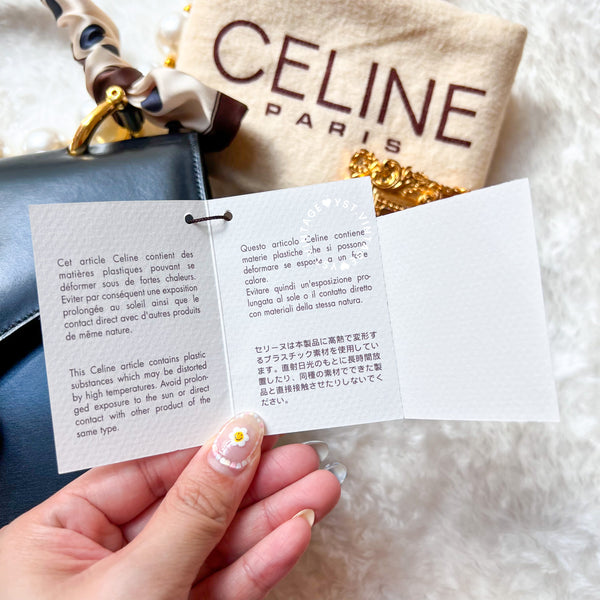 CELINE
PARIS
Cet article Celine contient des
matières plastiques pouvant se
déformer sous de fortes chaleurs.
Eviter par conséquent une exposition
prolongée au soleil ainsi que le
contact direct avec d'autres produits
de même nature.
This Celine article contains plastic
substances which may be distorted
by high temperatures. Avoid prolon-
ged exposure to the sun or direct
contact with other product of the
same type.
Questo articolo Celine contiene
materie plastiche che si possono
deformare se esposte a un forte
calore.
Evitare quindi un'esposizione pro-
lungata al sole o il contatto diretto
con materiali della stessa natura.
セリーヌは本製品に高熱で変形す
るプラスチック素材を使用してい
ます。直射日光のもとに長時間放
置したり、同種の素材でできた製
品と直接接触させたりしないでく
ださい。